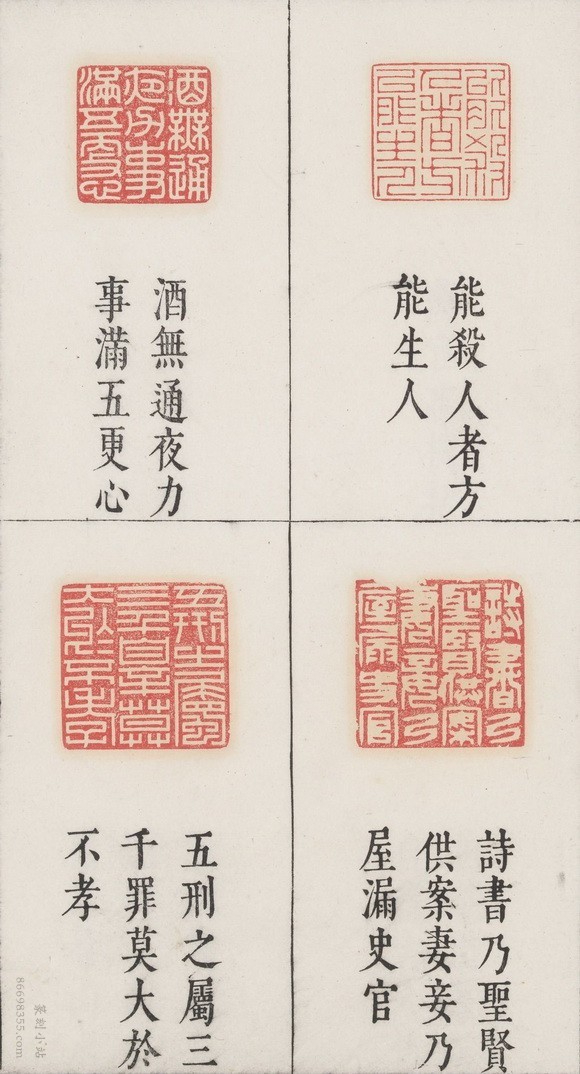 能殺人者方
能生人
酒無通夜力
事滿五更心
詩書乃聖賢
供案妻妾乃
屋漏史官
五刑之屬三
千罪莫大於
不孝
篆刻小站
86698355.com